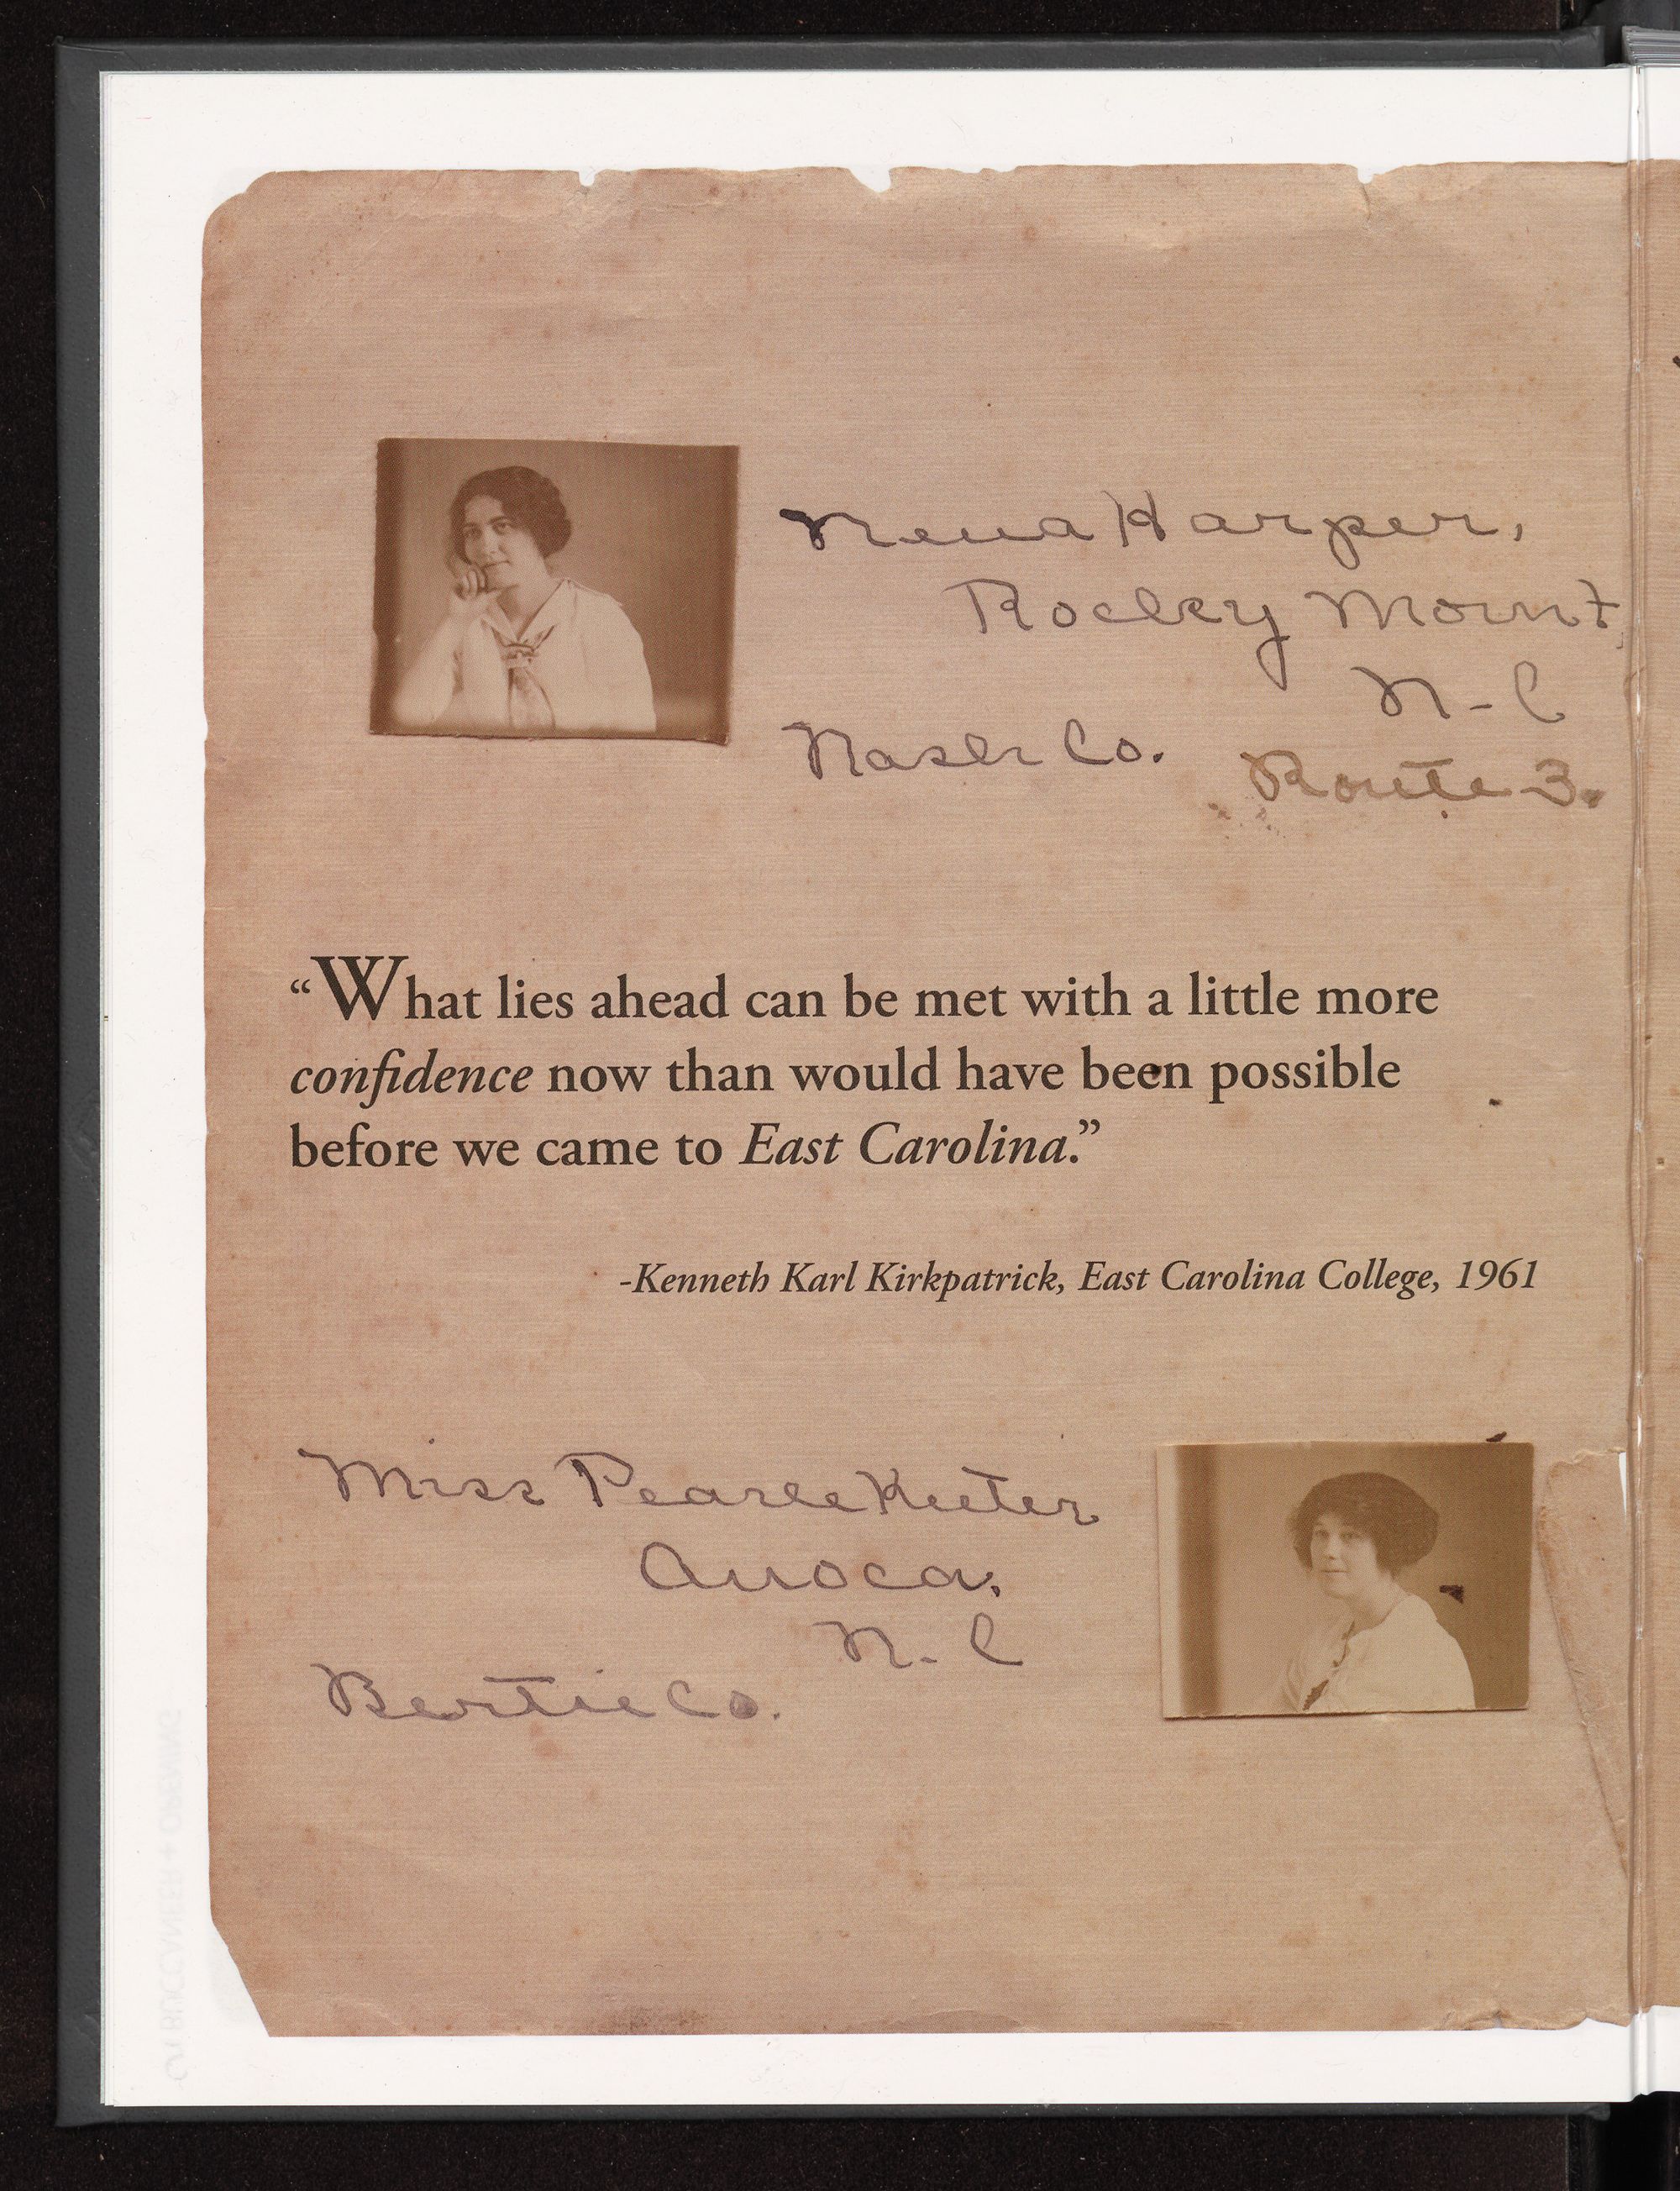 Nena Harper,
Rocky Mount,
N-C
Nash Co.
Route 3.
“What lies ahead can be met with a little more
confidence now than would have been possible
before we came to East Carolina.”
-Kenneth Karl Kirkpatrick, East Carolina College, 1961
Miss Pearle Keeter
N. C
Bertie Co.